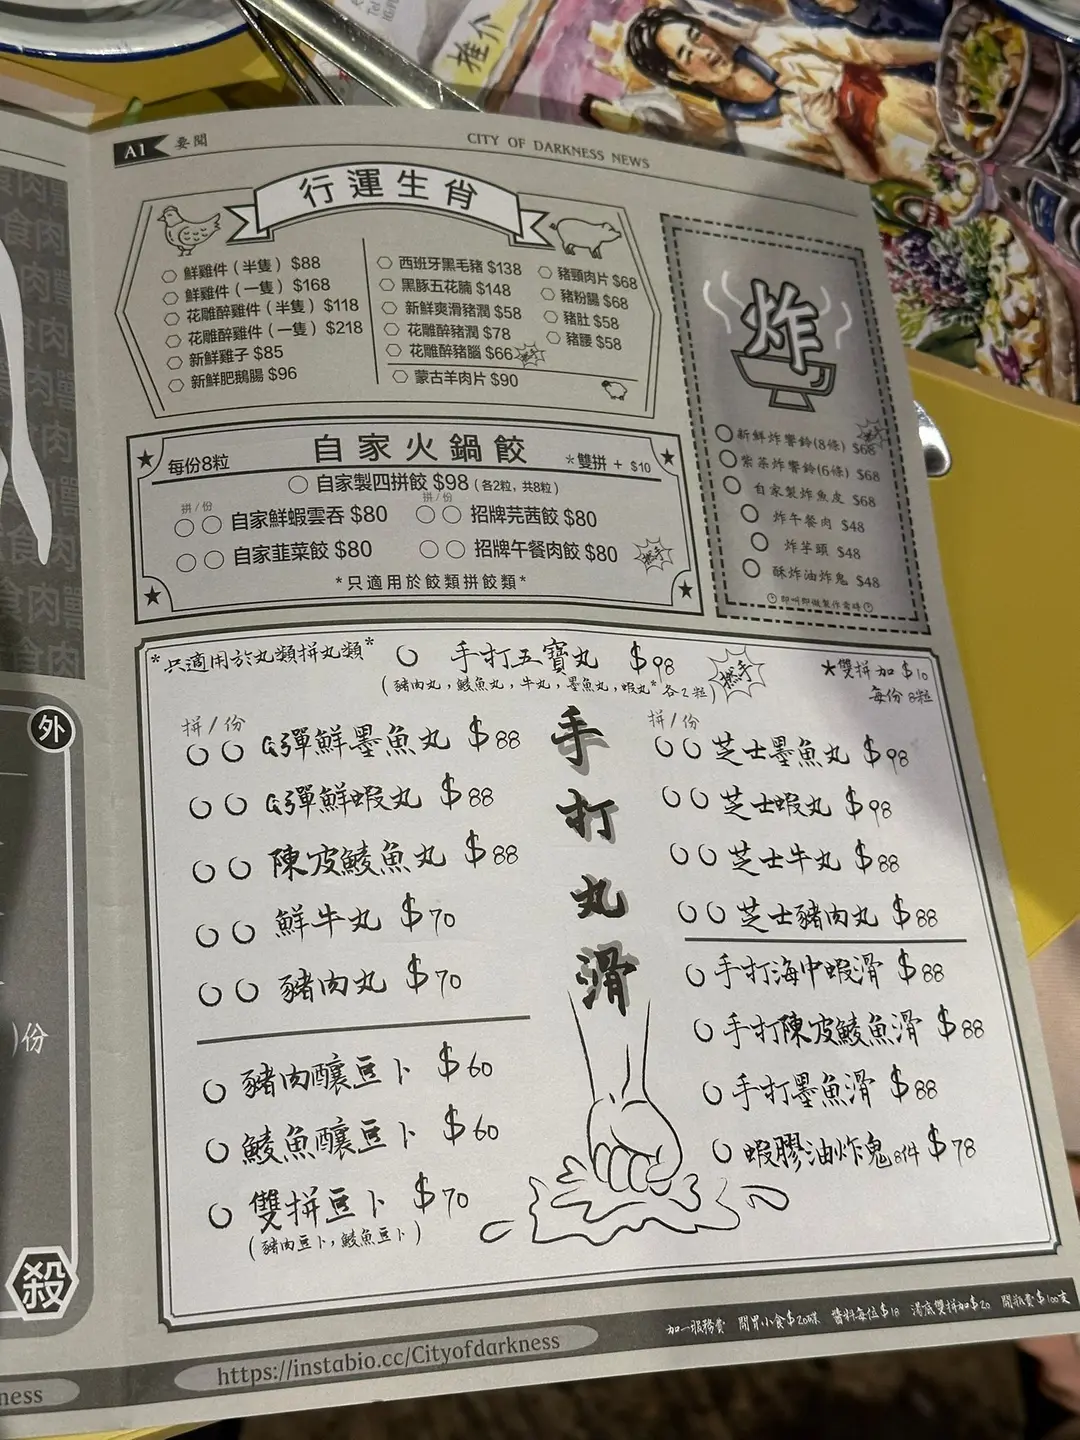 推介
A1 要聞
CITY OF DARKNESS NEWS
行運生肖
鮮雞件(半隻) $88
鮮雞件(一隻) $168
花雕醉雞件(半隻) $118
花雕醉雞件(一隻) $218
新鮮雞子 $85
新鮮肥鵝腸 $96
西班牙黑毛豬 $138
黑豚五花腩 $148
新鮮爽滑豬潤 $58
花雕醉豬潤 $78
花雕醉豬腦 $66
蒙古羊肉片 $90
豬頸肉片 $68
豬粉腸 $68
豬肚 $58
豬腰 $58
炸
新鮮炸響鈴(8條) $68
紫菜炸響鈴(6條) $68
自家製炸魚皮 $68
炸午餐肉 $48
炸芋頭 $48
酥炸油炸鬼 $48
即叫即做製作需時
每份8粒
自家火鍋餃
*雙拼 + $10
自家製四拼餃 $98 (各2粒, 共8粒)
拼/份
拼/份
自家鮮蝦雲吞 $80
招牌芫茜餃 $80
自家韮菜餃 $80
招牌午餐肉餃 $80
*只適用於餃類拼餃類*
*只適用於丸類拼丸類*
手打五寶丸 $98
(豬肉丸,鯪魚丸,牛丸,墨魚丸,蝦丸*各2粒)
推介
★雙拼加 $10
每份8粒
手打丸滑
拼/份
鮮墨魚丸 $88
鮮蝦丸 $88
陳皮鯪魚丸 $88
鮮牛丸 $70
豬肉丸 $70
豬肉釀豆卜 $60
鯪魚釀豆卜 $60
雙拼豆卜 $70
(豬肉豆卜,鯪魚豆卜)
拼/份
芝士墨魚丸 $98
芝士蝦丸 $98
芝士牛丸 $88
芝士豬肉丸 $88
手打海中蝦滑 $88
手打陳皮鯪魚滑 $88
手打墨魚滑 $88
蝦膠油炸鬼8件 $78
加一服務費 開胃小食$20碟 醬料每位$18 湯底雙拼加$20 開瓶費$100支
https://instabio.cc/Cityofdarkness
外
)份
殺
ness